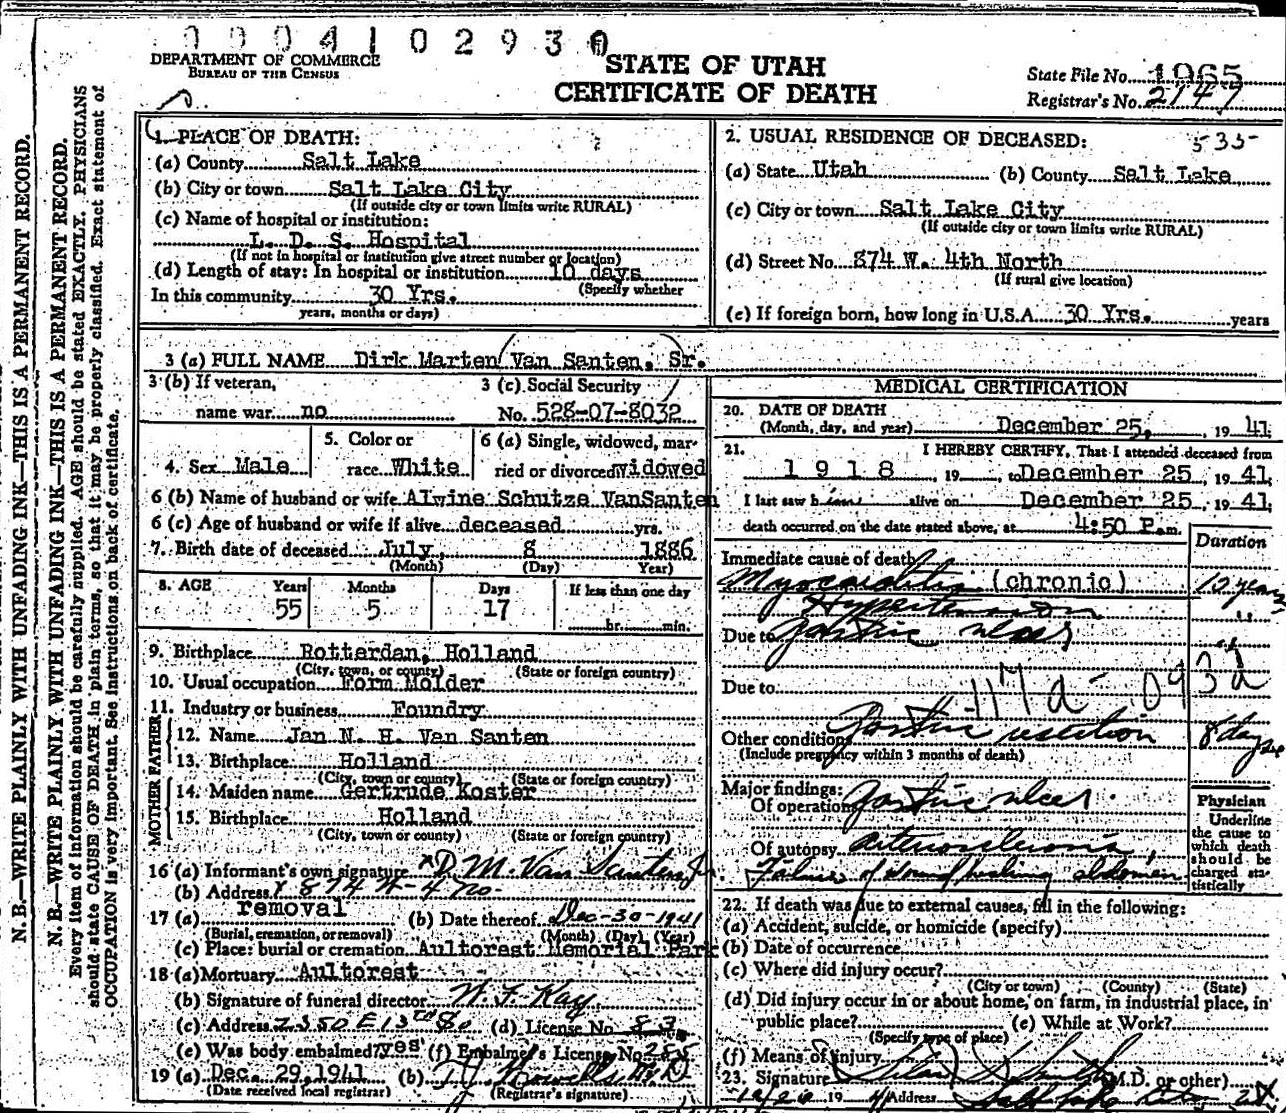 0004102930
DEPARTMENT OF COMMERCE
BUREAU OF THE CENSUS
STATE OF UTAH
CERTIFICATE OF DEATH
State File No. 1965
Registrar's No. 2147
N. B.—WRITE PLAINLY WITH UNFADING INK—THIS IS A PERMANENT RECORD.
N. B.—WRITE PLAINLY WITH UNFADING INK—THIS IS A PERMANENT RECORD.
Every item of information should be carefully supplied. AGE should be stated EXACTLY. PHYSICIANS
should state CAUSE OF DEATH in plain terms, so that it may be properly classified. Exact statement of
OCCUPATION is very important. See instructions on back of certificate.
1. PLACE OF DEATH:
(a) County Salt Lake
(b) City or town Salt Lake City
(If outside city or town limits write RURAL)
(c) Name of hospital or institution:
L. D. S. Hospital
(If not in hospital or institution give street number or location)
(d) Length of stay: In hospital or institution 10 days
(Specify whether
In this community 30 Yrs.
years, months or days)
2. USUAL RESIDENCE OF DECEASED: 535
(a) State Utah (b) County Salt Lake
(c) City or town Salt Lake City
(If outside city or town limits write RURAL)
(d) Street No. 874 W. 4th North
(If rural give location)
(e) If foreign born, how long in U.S.A. 30 Yrs. years
3 (a) FULL NAME Dirk Marten (Van Santen, Sr.
3 (b) If veteran,
name war no
3 (c) Social Security
No. 528-07-8032
4. Sex Male
5. Color or
race White
6 (a) Single, widowed, mar-
ried or divorced widowed
6 (b) Name of husband or wife Alwine Schutze VanSanten
6 (c) Age of husband or wife if alive deceased yrs.
7. Birth date of deceased July 8 1886
(Month) (Day) Year)
8. AGE Years Months Days If less than one day
55 5 17 hr. min.
9. Birthplace Rotterdan, Holland
(City, town, or county) (State or foreign country)
10. Usual occupation Form Molder
11. Industry or business Foundry
FATHER
12. Name Jan N. H. Van Santen
13. Birthplace Holland
(City, town or county) (State or foreign country)
MOTHER
14. Maiden name Gertrude Koster
15. Birthplace Holland
(City, town or county) (State or foreign country)
16 (a) Informant's own signature x D. M. Van Santen Jr.
(b) Address 874 W-4 No-
17 (a) removal (b) Date thereof Dec-30-1941
(Burial, cremation, or removal) (Month) (Day) (Year)
(c) Place: burial or cremation Aultorest Memorial Park
18 (a) Mortuary Aultorest
(b) Signature of funeral director W. F. Kay
(c) Address 2350 E 13th So (d) License No 83
(e) Was body embalmed? yes (f) Embalmer's License No. 285
19 (a) Dec. 29, 1941 (b)
(Date received local registrar) (Registrar's signature)
MEDICAL CERTIFICATION
20. DATE OF DEATH
(Month, day, and year) December 25, 19 41
21. I HEREBY CERTIFY, That I attended deceased from
1918, 19 , to December 25, 19 41,
I last saw him alive on December 25, 19 41;
death occurred on the date stated above, at 4:50 P.m.
Duration
Immediate cause of death
Myocarditis (chronic) 10 years
Hypertension "
Due to Gastric ulcer "
Due to 117a - 093d
Other conditions Gastric resection 8 days
(Include pregnancy within 3 months of death)
Major findings:
Of operation Gastric ulcer.
Of autopsy arteriosclerosis,
Failure of wound healing abdomen
Physician
Underline
the cause to
which death
should be
charged sta-
tistically
22. If death was due to external causes, fill in the following:
(a) Accident, suicide, or homicide (specify)
(b) Date of occurrence
(c) Where did injury occur?
(City or town) (County) (State)
(d) Did injury occur in or about home, on farm, in industrial place, in
public place? (e) While at Work?
(Specify type of place)
(f) Means of injury
23. Signature (M.D. or other)
12/26 19 41 Address Salt Lake City